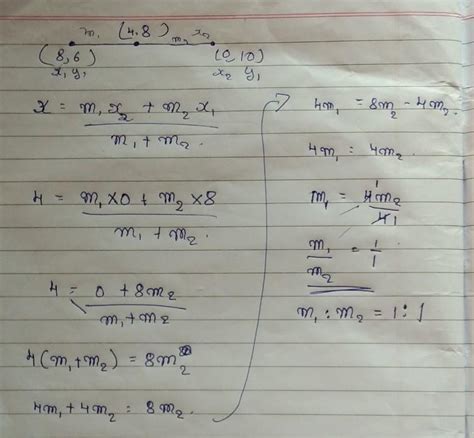 m₁ (4,8) m₂ x₂
(8,6) (0,10)
x₁ y₁ x₂ y₁
x = m₁x₂ + m₂x₁ / m₁ + m₂.
4 = m₁×0 + m₂×8 / m₁ + m₂.
4 = 0 + 8m₂ / m₁ + m₂
4(m₁+m₂) = 8m₂
4m₁ + 4m₂ = 8m₂.
4m₁ = 8m₂ - 4m₂.
4m₁ = 4m₂.
m₁ = 4m₂ / 4 1
m₁ / m₂ = 1 / 1
m₁ : m₂ = 1 : 1